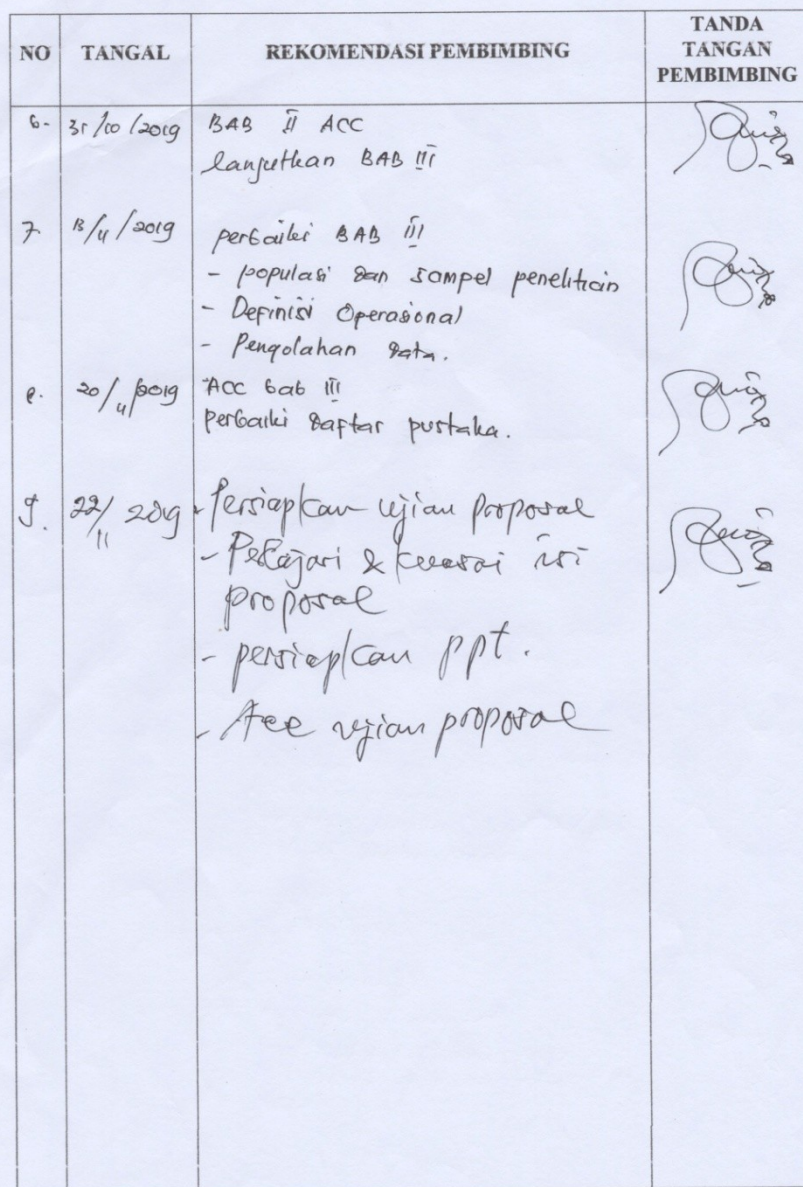 NO TANGAL REKOMENDASI PEMBIMBING TANDA TANGAN PEMBIMBING
6. 31/10/2019 BAB II ACC
lanjutkan BAB III
7. 13/11/2019 perbaiki BAB III
- populasi dan sampel penelitian
- Definisi Operasional
- Pengolahan data.
8. 20/11/2019 ACC bab III
perbaiki daftar pustaka.
9. 22/11 2019 - Persiapkan ujian proposal
- Pelajari & kuasai isi
proposal
- persiapkan ppt.
- Acc ujian proposal